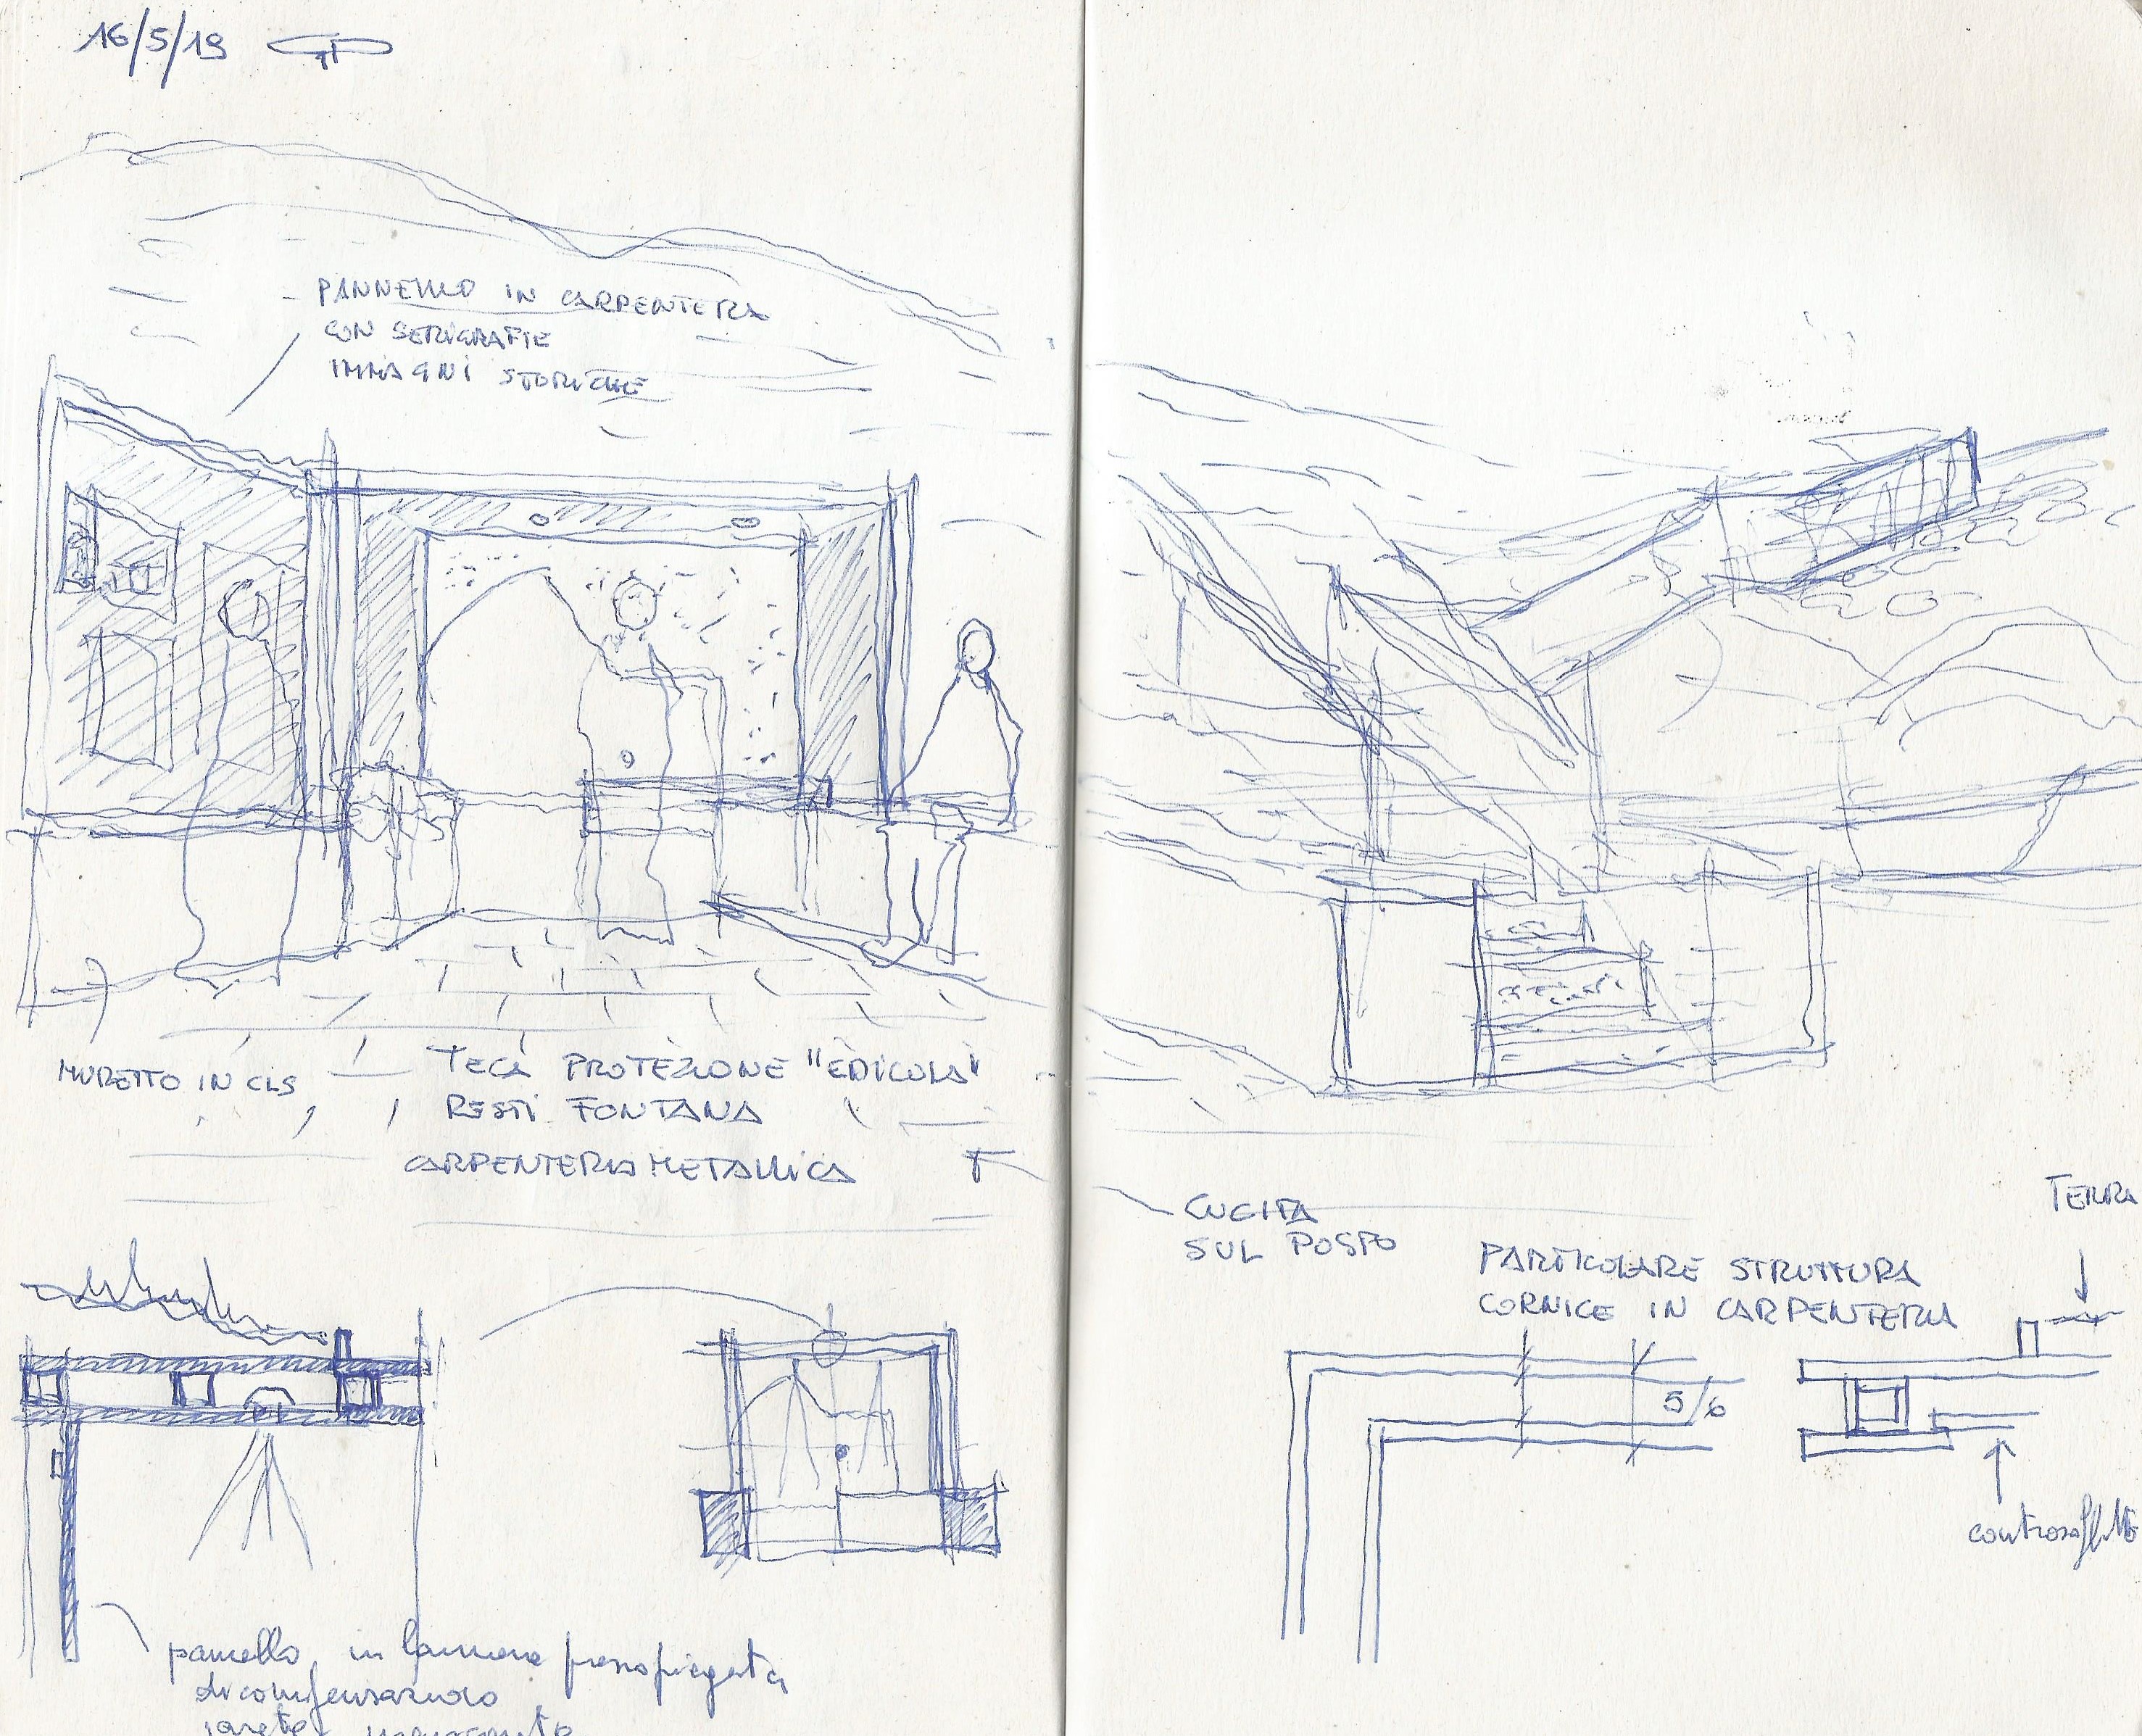 16/5/19 GP
PANNELLO IN CARPENTERIA
CON SERIGRAFIE
IMMAGINI STORICHE
MURETTO IN CLS
TECA PROTEZIONE "EDICOLA"
RESTI FONTANA
CARPENTERIA METALLICA
CUCITA
SUL POSTO
TERRA
PARTICOLARE STRUTTURA
CORNICE IN CARPENTERIA
5/6
controsoffitto
pannello in lamiera pressopiegata
di compensazione
parete